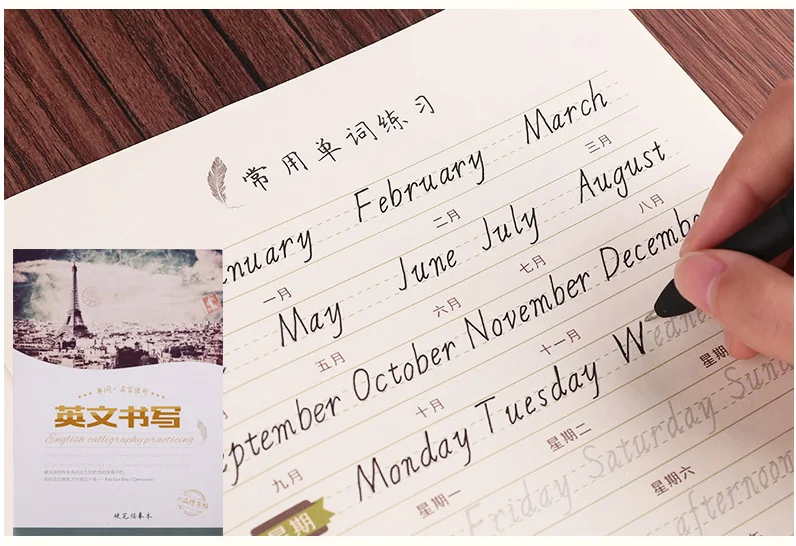 常用单词练习
nuary February March
一月 二月 三月
May June July August
五月 六月 七月 八月
eptember October November Decembe
九月 十月 十一月
Monday Tuesday Wedne
星期一 星期二 星期
Friday Saturday Sun
星期六
星期
afternoon
单词·名言佳句
英文书写
English calligraphy practicing
硬笔临摹本